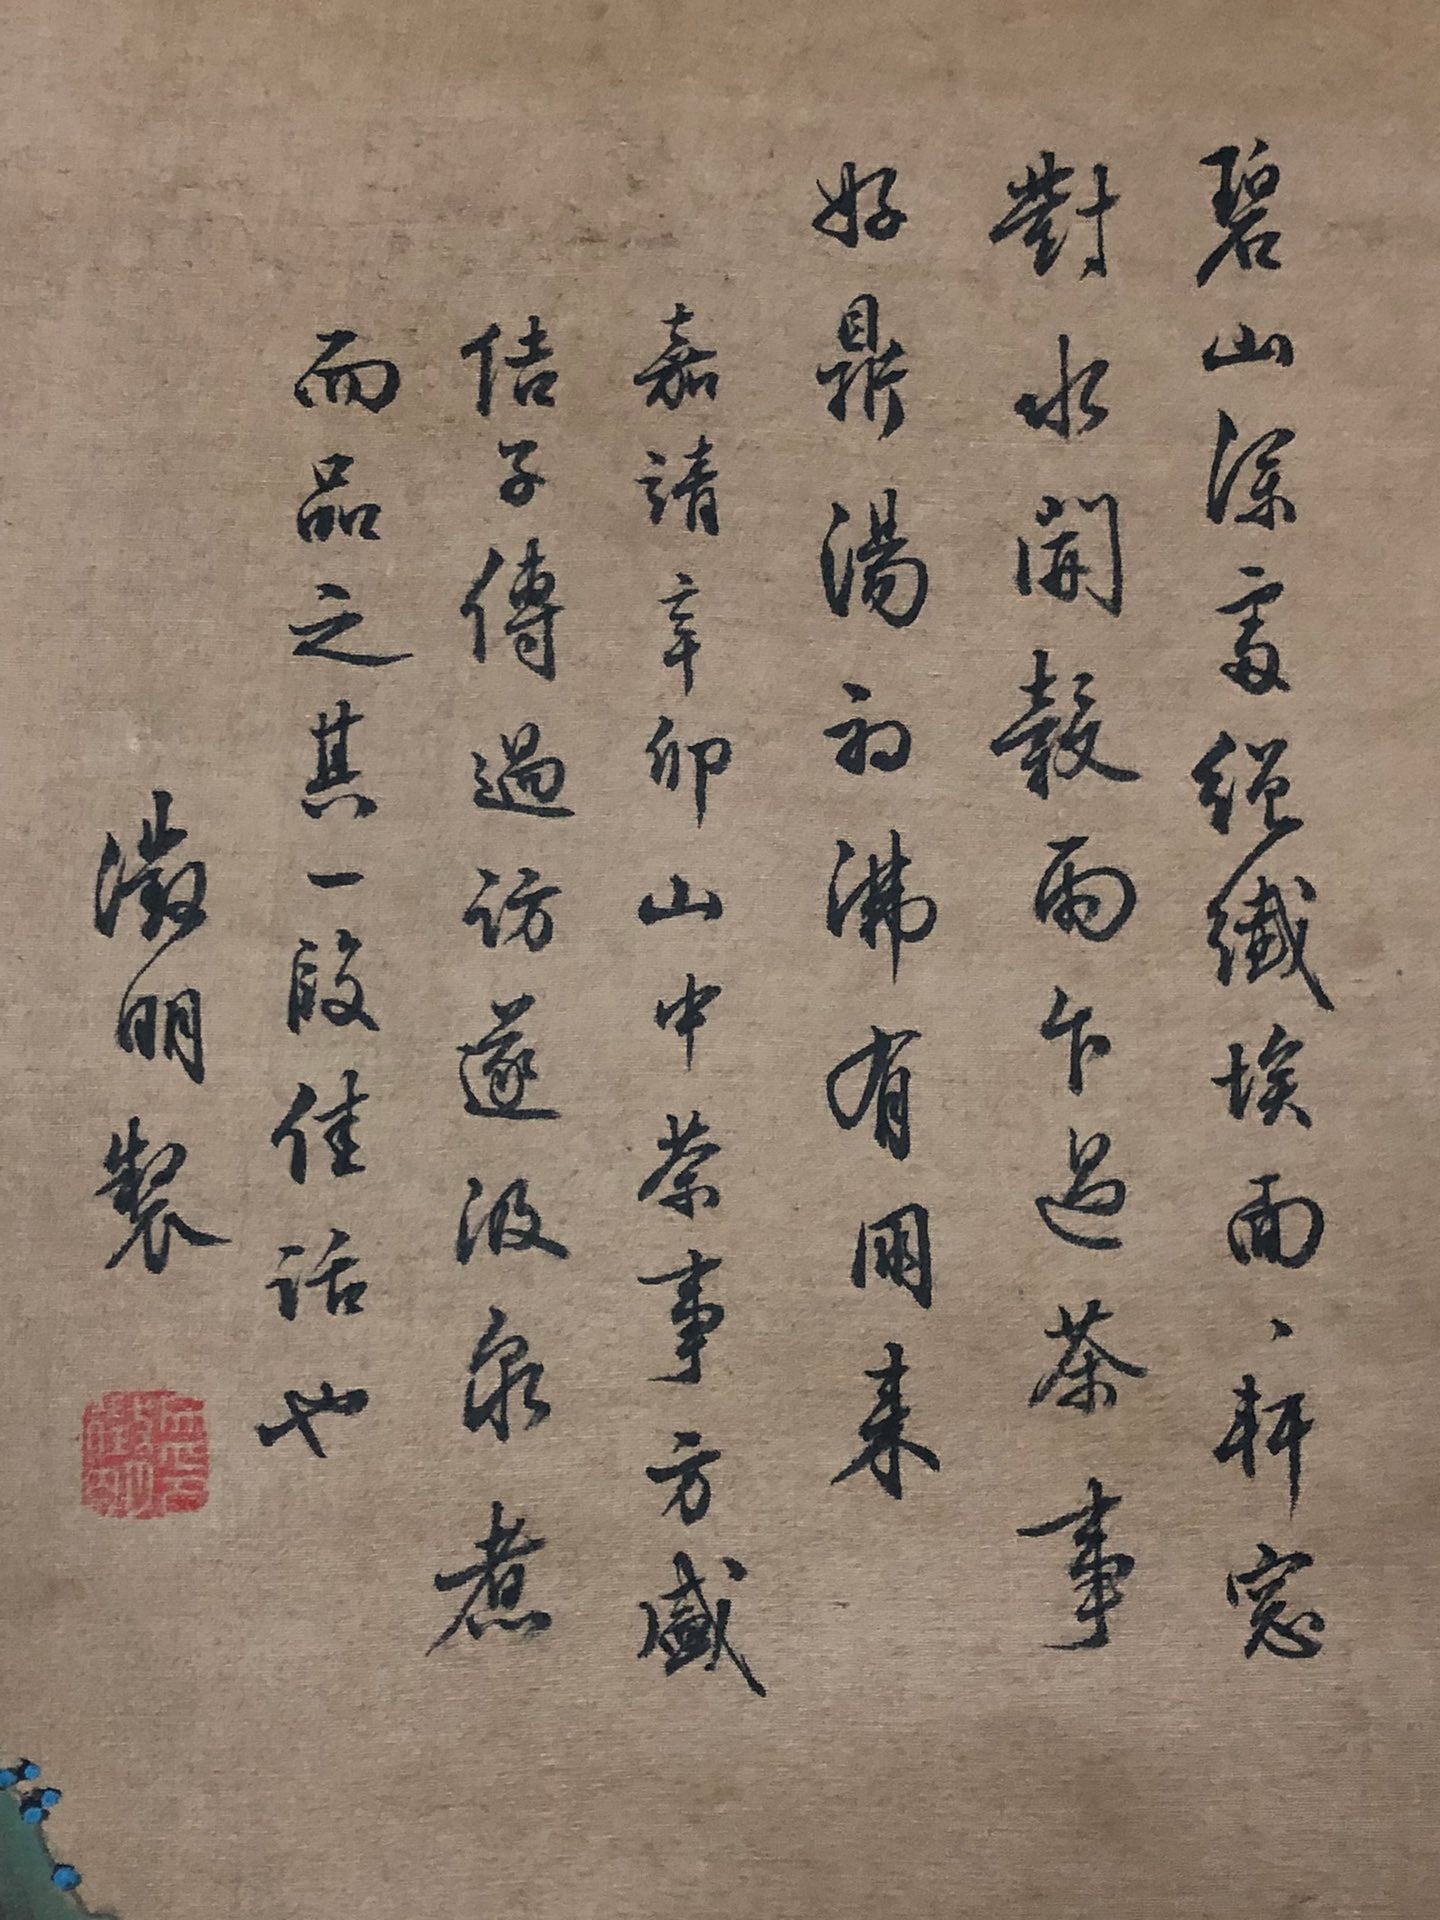 碧山深處絕纖埃面、軒窓
對水開穀雨乍過茶事
好鼎湯初沸有朋来
嘉靖辛卯山中茶事方盛
佶子傳過訪遂汲泉煮
而品之其一段佳話也
澂明製